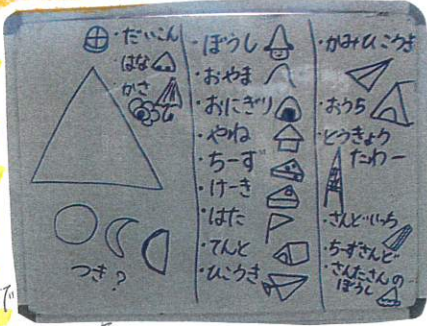 ・だいこん
・はな
・かさ
つき?
・ぼうし
・おやま
・おにぎり
・やね
・ちーず
・けーき
・はた
・てんと
・ひこうき
・かみひこうき
・おうち
・とうきょう
たわー
・さんどいっち
・ちーずさんど
・さんたさんの
ぼうし
で